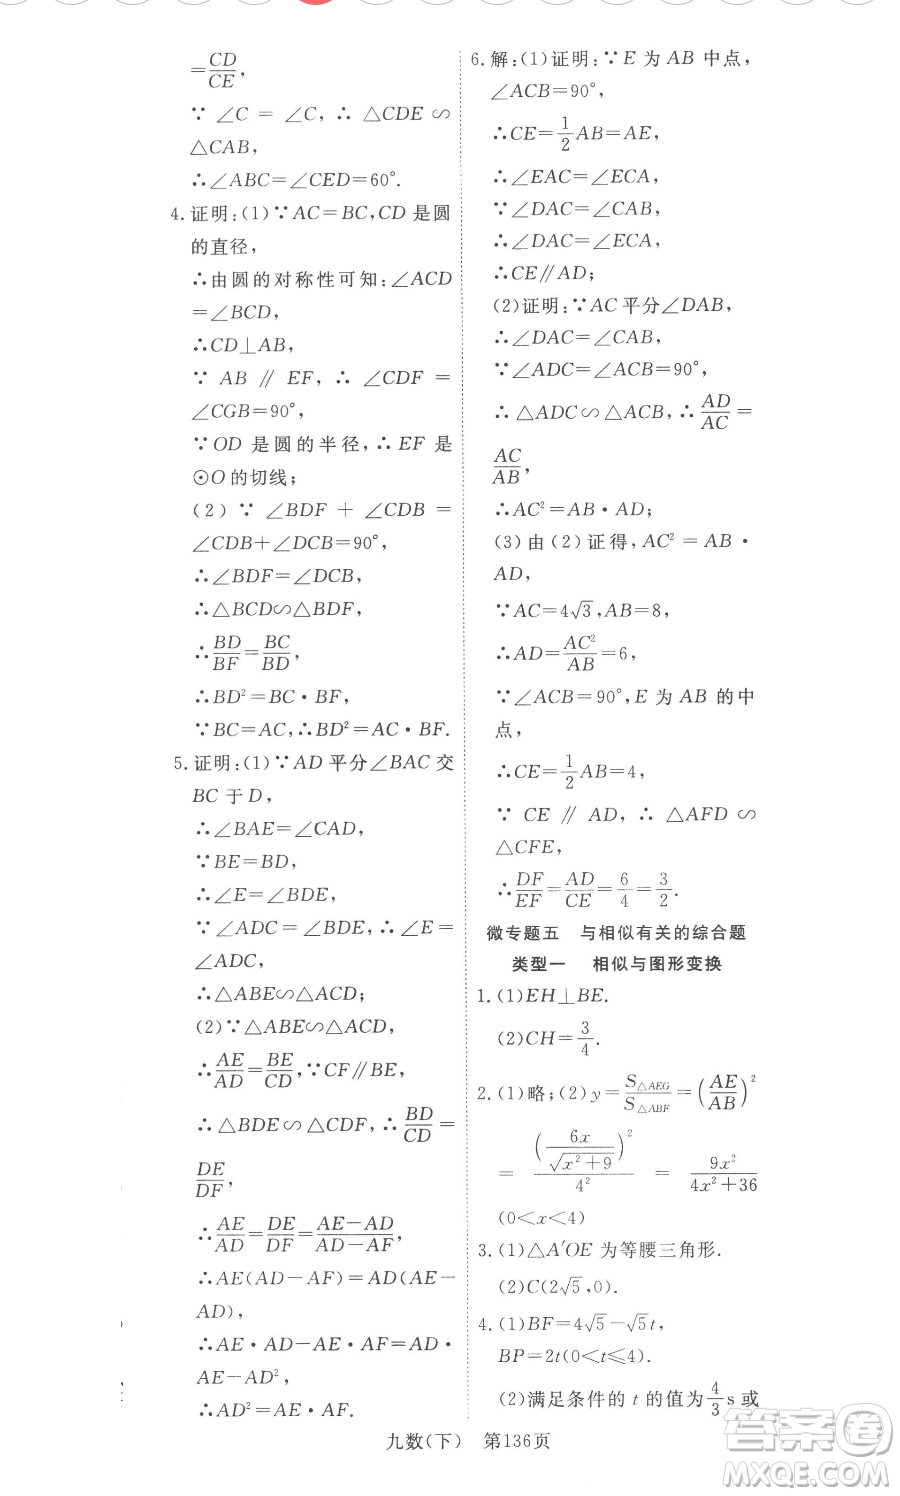 =CD/CE,
∵ ∠C = ∠C, ∴ △CDE ∽
△CAB,
∴∠ABC=∠CED=60°.
4.证明:(1)∵AC=BC,CD是圆
的直径,
∴由圆的对称性可知:∠ACD
=∠BCD,
∴CD⊥AB,
∵ AB ∥ EF, ∴ ∠CDF =
∠CGB=90°,
∵OD是圆的半径,∴EF是
⊙O的切线;
(2) ∵ ∠BDF + ∠CDB =
∠CDB+∠DCB=90°,
∴∠BDF=∠DCB,
∴△BCD∽△BDF,
∴BD/BF=BC/BD,
∴BD²=BC·BF,
∵BC=AC,∴BD²=AC·BF.
5.证明:(1)∵AD平分∠BAC交
BC于D,
∴∠BAE=∠CAD,
∵BE=BD,
∴∠E=∠BDE,
∵∠ADC=∠BDE,∴∠E=
∠ADC,
∴△ABE∽△ACD;
(2)∵△ABE∽△ACD,
∴AE/AD=BE/CD,∵CF∥AB,
∴△BDE∽△CDF,∴BD/CD=
DE/DF,
∴AE/AD=DE/DF=(AE-AD)/(AD-AF),
∴AE(AD-AF)=AD(AE-
AD),
∴AE·AD-AE·AF=AD·
AE-AD²,
∴AD²=AE·AF.
6.解:(1)证明:∵E为AB中点,
∠ACB=90°,
∴CE=1/2AB=AE,
∴∠EAC=∠ECA,
∵∠DAC=∠CAB,
∴∠DAC=∠ECA,
∴CE∥AD;
(2)证明:∵AC平分∠DAB,
∴∠DAC=∠CAB,
∵∠ADC=∠ACB=90°,
∴△ADC∽△ACB,∴AD/AC=
AC/AB,
∴AC²=AB·AD;
(3)由(2)证得,AC²=AB·
AD,
∵AC=4√3,AB=8,
∴AD=AC²/AB=6,
∵∠ACB=90°,E为AB的中
点,
∴CE=1/2AB=4,
∵ CE ∥ AD, ∴ △AFD ∽
△CFE,
∴DF/EF=AD/CE=6/4=3/2.
微专题五 与相似有关的综合题
类型一 相似与图形变换
1.(1)EH⊥BE.
(2)CH=3/4.
2.(1)略;(2)y=S△AEG/S△ABF=(AE/AB)²
=(6x/√(x²+9))²/4²=9x²/(4x²+36)
(0<x<4)
3.(1)△A′OE为等腰三角形.
(2)C(2√5,0).
4.(1)BF=4√5-√5t,
BP=2t(0<t≤4).
(2)满足条件的t的值为4/3s或
九数(下) 第136页
答案圈
MXQE.COM